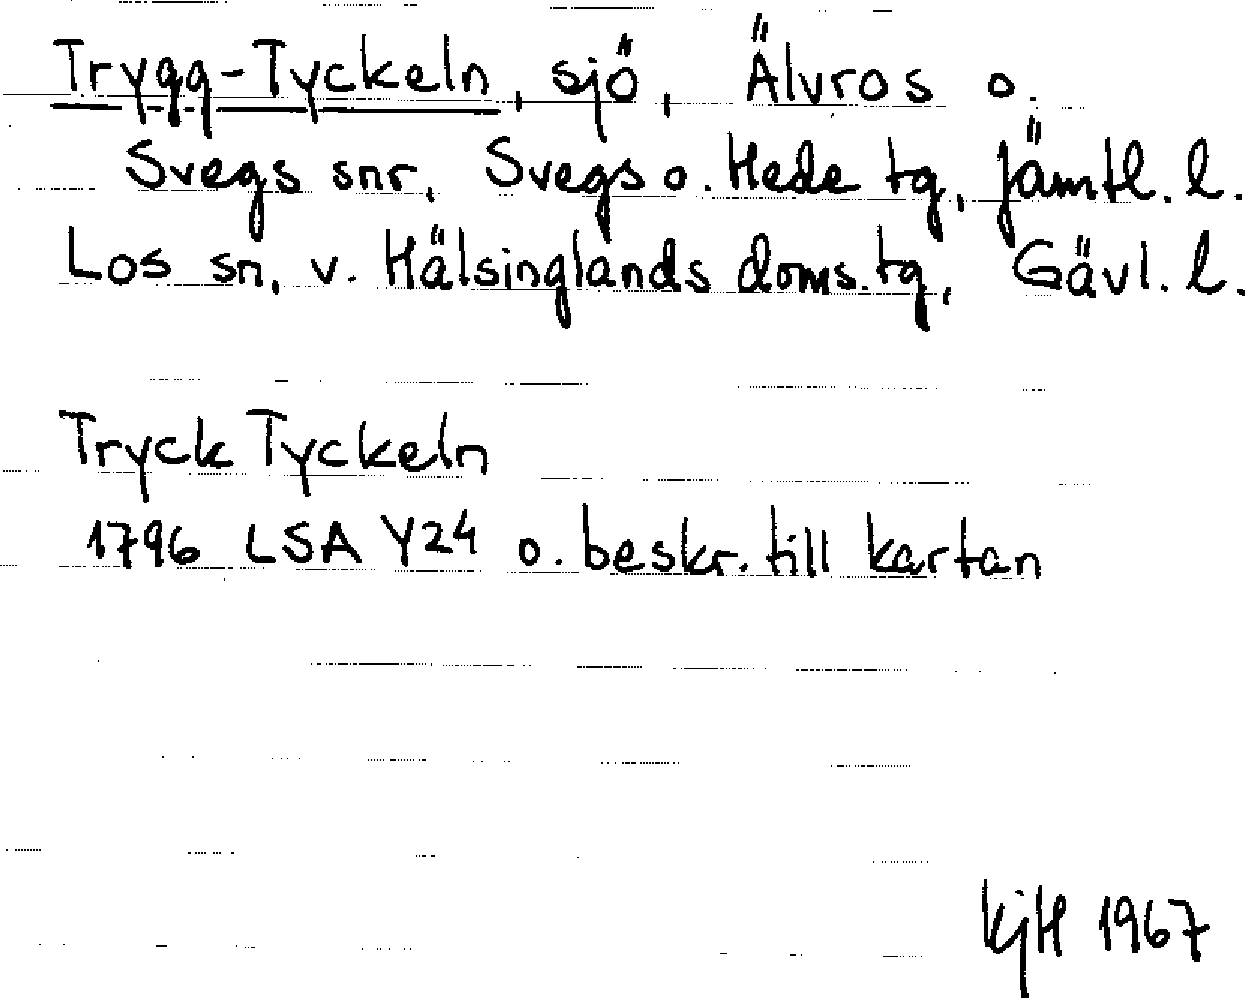 Trygg-Tyckeln, sjö, Älvros o.
Svegs snr, Svegs o. Hede tg, Jämtl. l.
Los sn, v. Hälsinglands doms.tg, Gävl. l.
Tryck Tyckeln
1796 LSA Y24 o. beskr. till kartan
KjH 1967